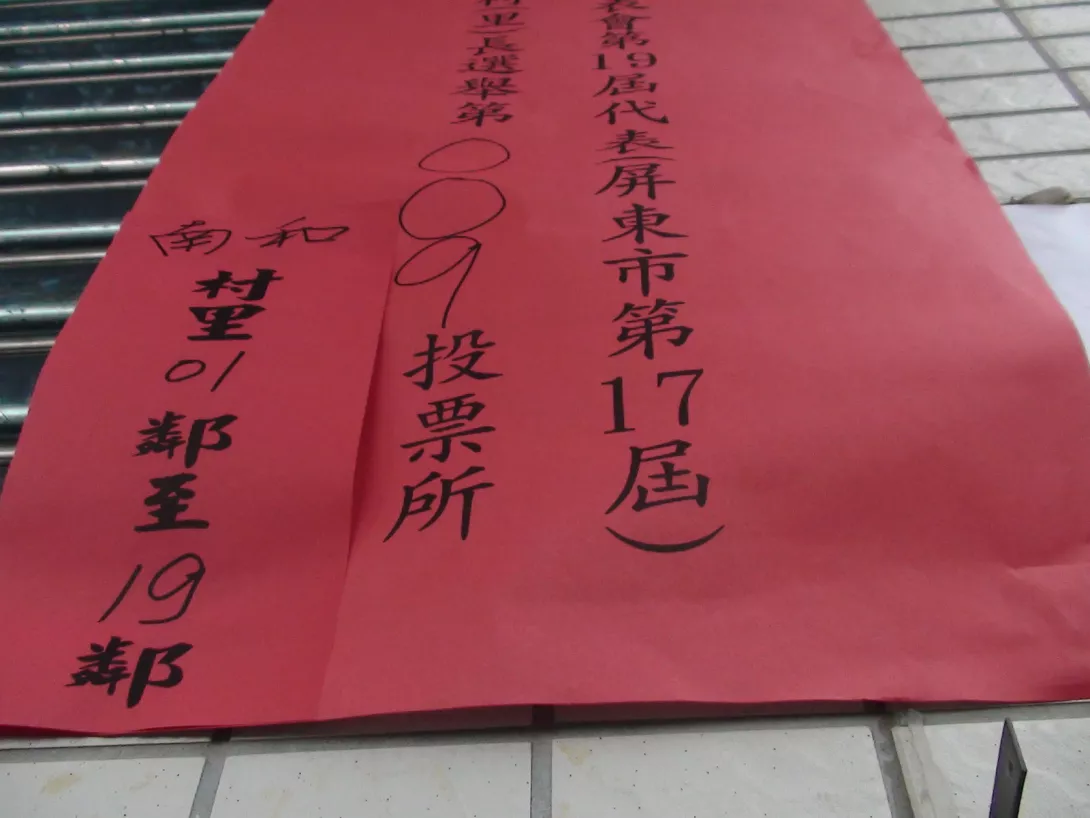 表會第19屆代表(屏東市第17屆)
村里)長選舉第009投票所
南和村里01鄰至19鄰